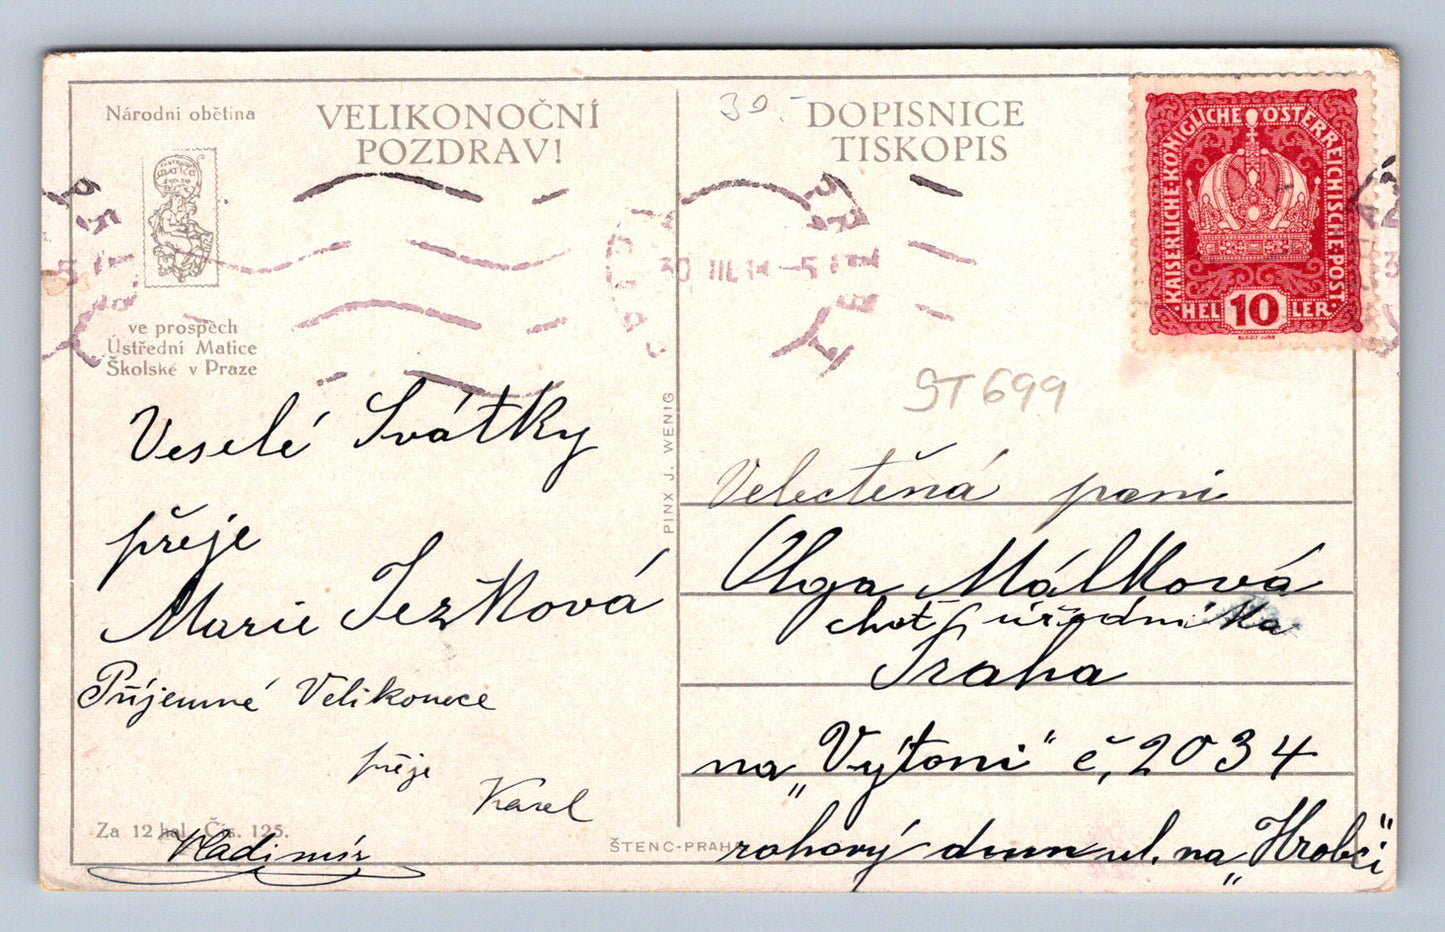 Národní obětina
VELIKONOČNÍ
POZDRAV!
ve prospěch
Ústřední Matice
Školské v Praze
Veselé Svátky
přeje
Marie Jezková
Příjemné Velikonoce
přeje
Karel
Vladimír
Za 12 hal. Čís. 125.
PINX J. WENIG
ŠTENC-PRAHA
30.-
DOPISNICE
TISKOPIS
KAISERLICHE·KÖNIGLICHE ÖSTERREICHISCHE·POST·
HEL 10 LER
30 III 1 -5
ST 699
Velectěná paní
Olga Málková
choť úředníka
Praha
na „Výtoni" č, 2034
rohový dům ul. na „Hrobci"